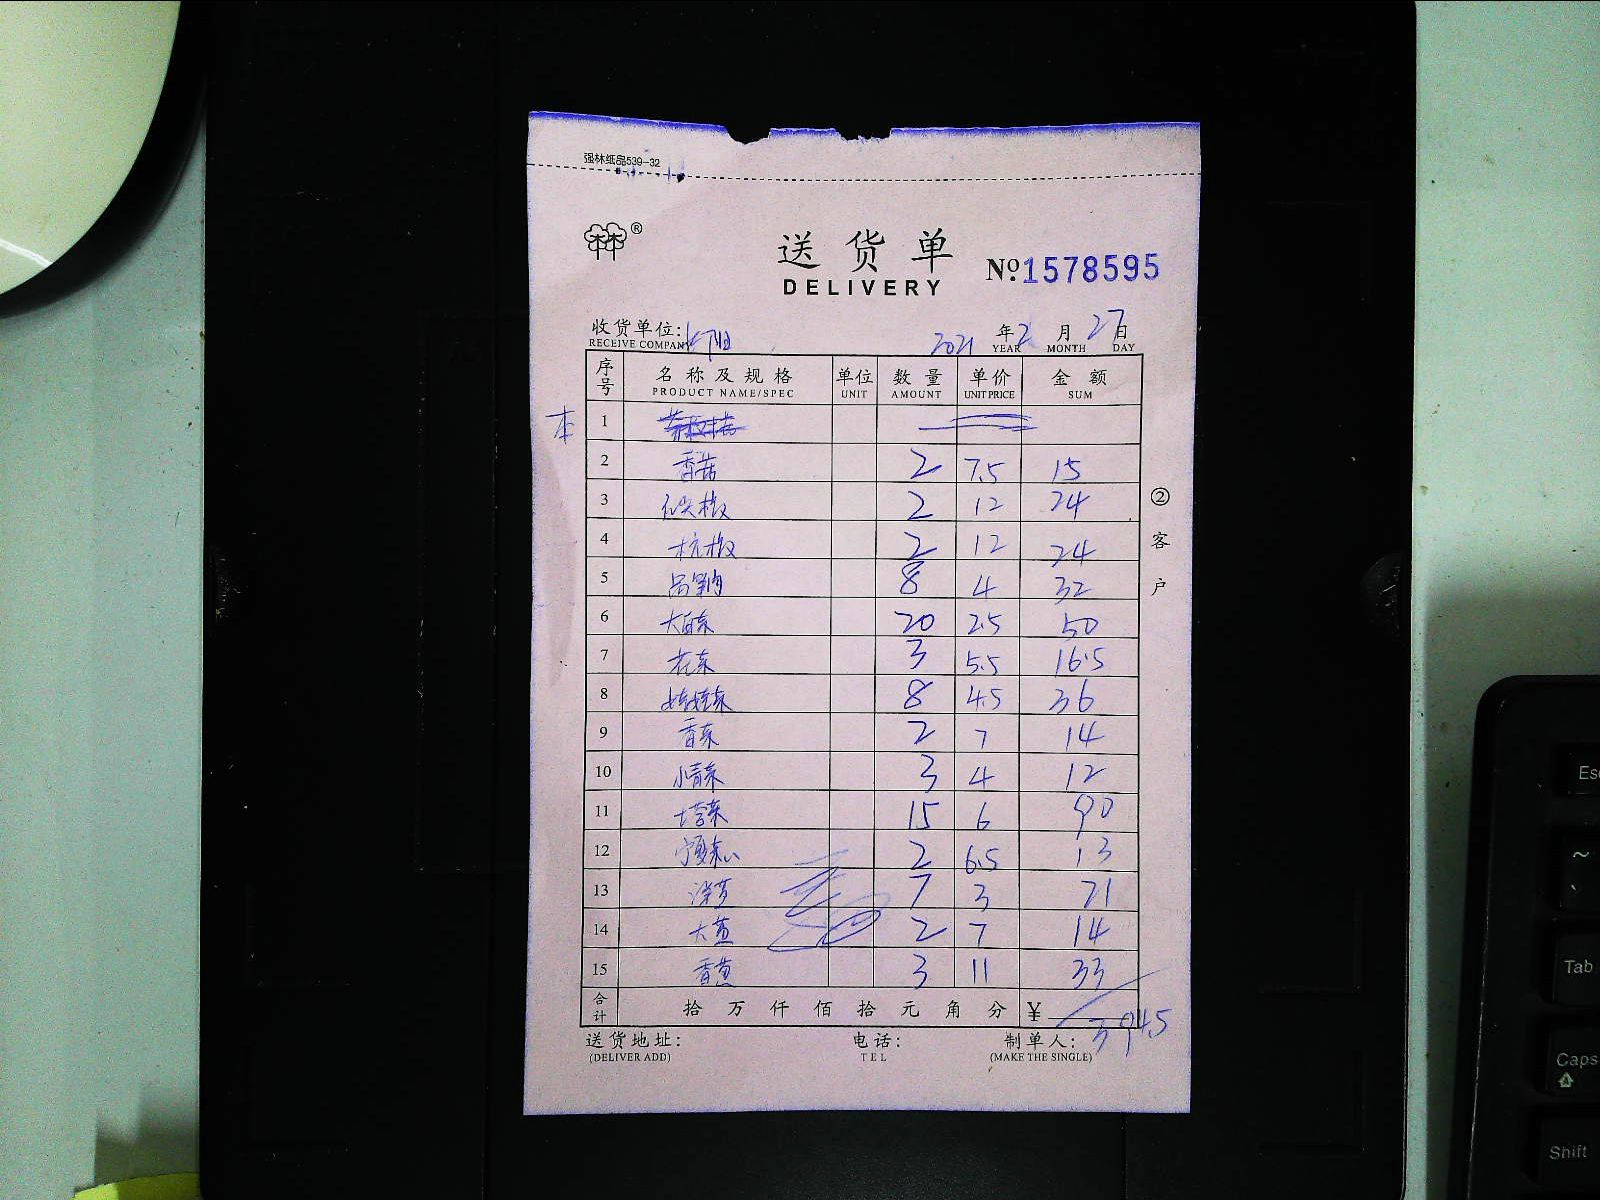 强林纸品539-32
林®
送货单 №1578595
DELIVERY
收货单位: 2021年2月27日
RECEIVE COMPAN YEAR MONTH DAY
序号 名称及规格 单位 数量 单价 金额
PRODUCT NAME/SPEC UNIT AMOUNT UNIT PRICE SUM
本 1
2 香菇 2 7.5 15
3 2 12 24
4 杭椒 2 12 24
5 8 4 32
6 大白菜 20 2.5 50
7 花菜 3 5.5 16.5
8 娃娃菜 8 4.5 36
9 香菜 2 7 14
10 小青菜 3 4 12
11 塔菜 15 6 90
12 宁夏菜心 2 6.5 13
13 洋芋 7 3 21
14 大葱 2 7 14
15 香葱 3 11 33
合计 拾万仟佰拾元角分 ¥ 394.5
送货地址: 电话: 制单人:
(DELIVER ADD) TEL (MAKE THE SINGLE)
②客户
Esc
~
Tab
Caps
Shift